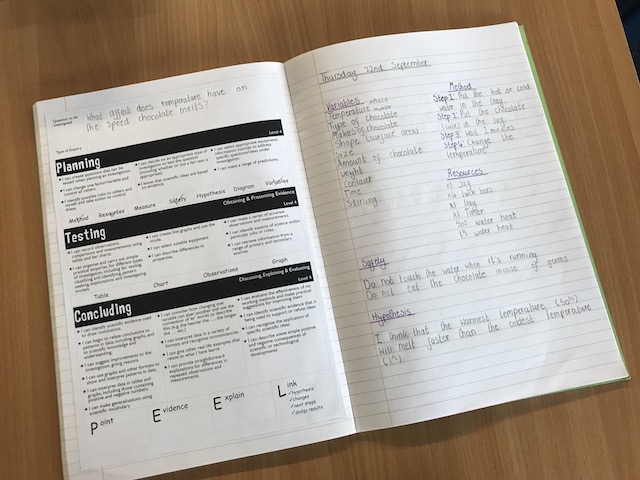 Question to be investigated
What affect does temperature have on
the speed chocolate melts?
Type of Enquiry
Level 4
Planning
I can create questions that can be
tested when planning an investigation.
I can change one factor/variable and
control all others.
I can identify possible risks to others and
myself and take action to control
these.
I can decide on an appropriate type of
investigation to test the question
(including whether or not a fair test is
appropriate).
I know that scientific ideas are based
on evidence.
I can select appropriate equipment
information sources to address
specific questions/ideas under
investigation.
I can make a range of predictions.
Method Resources Measure Safety Hypothesis Diagram Variables
Obtaining & Presenting Evidence
Level 4
Testing
I can record observations,
comparisons and measurements using
tables and bar charts.
I can organise and carry out simple
practical enquiries for different types
of investigation, including fair testing,
classifying and identifying, pattern
seeking, explorations and investigating
models.
I can create line graphs and use the
mode.
I can select suitable equipment.
I can describe differences in
properties.
I can make a series of accurate
observations and measurements.
I can identify aspects of science within
particular jobs or roles.
I can retrieve information from a
range of primary and secondary
sources.
Table Chart Observations Graph
Discussing, Explaining & Evaluating
Level 4
Concluding
I can identify scientific evidence used
to draw conclusions.
I can begin to relate conclusions to
patterns in data, including graphs, and
to scientific knowledge and
understanding.
I can suggest improvements to the
investigation, giving reasons.
I can use graphs and other formats to
show and interpret patterns in data.
I can interpret data in tables and
graphs, including those containing
positive and negative numbers.
I can make generalisations using
scientific vocabulary.
I can consider how changing one
variable can alter another and use the
convention of 'er' words to describe
this (e.g. the heavier the ... the longer
the ... etc)
I can interpret data in a variety of
formats and recognise inconsistencies.
I can give other real life examples that
relate to what I have learnt
I can provide straightforward
explanations for differences in
repeated observations and
measurements
I can evaluate the effectiveness of my
working methods and make practical
suggestions for improving them
I can identify scientific evidence that is
being used to support or refute ideas
I can recognise the application of
specific scientific ideas
I can describe some simple positive
and negative consequences of
scientific or technological
developments
Point Evidence Explain Link
✓hypothesis
✓changes
✓next steps
✓dodgy results
Thursday 22nd September
Variables
Temperature water
Type of chocolate
Makes of chocolate
Shape (surface area)
Size
Amount of chocolate
weight
Time
Stirring
Method
Step 1: Put the hot or cold
water in the jug
Step 2: Put the chocolate
in the jug
Step 3: Wait 2 minutes
Step 4: Change the
temperature!
Resources
x1 Jug
x1
x1 Timer
50° water heat
1° water heat
Safety
Do not touch the water when it's running
Do not eat the chocolate incase of germs
Hypothesis
I think that the warmest temperature (50°)
will melt faster than the coldest temperature
(1°)